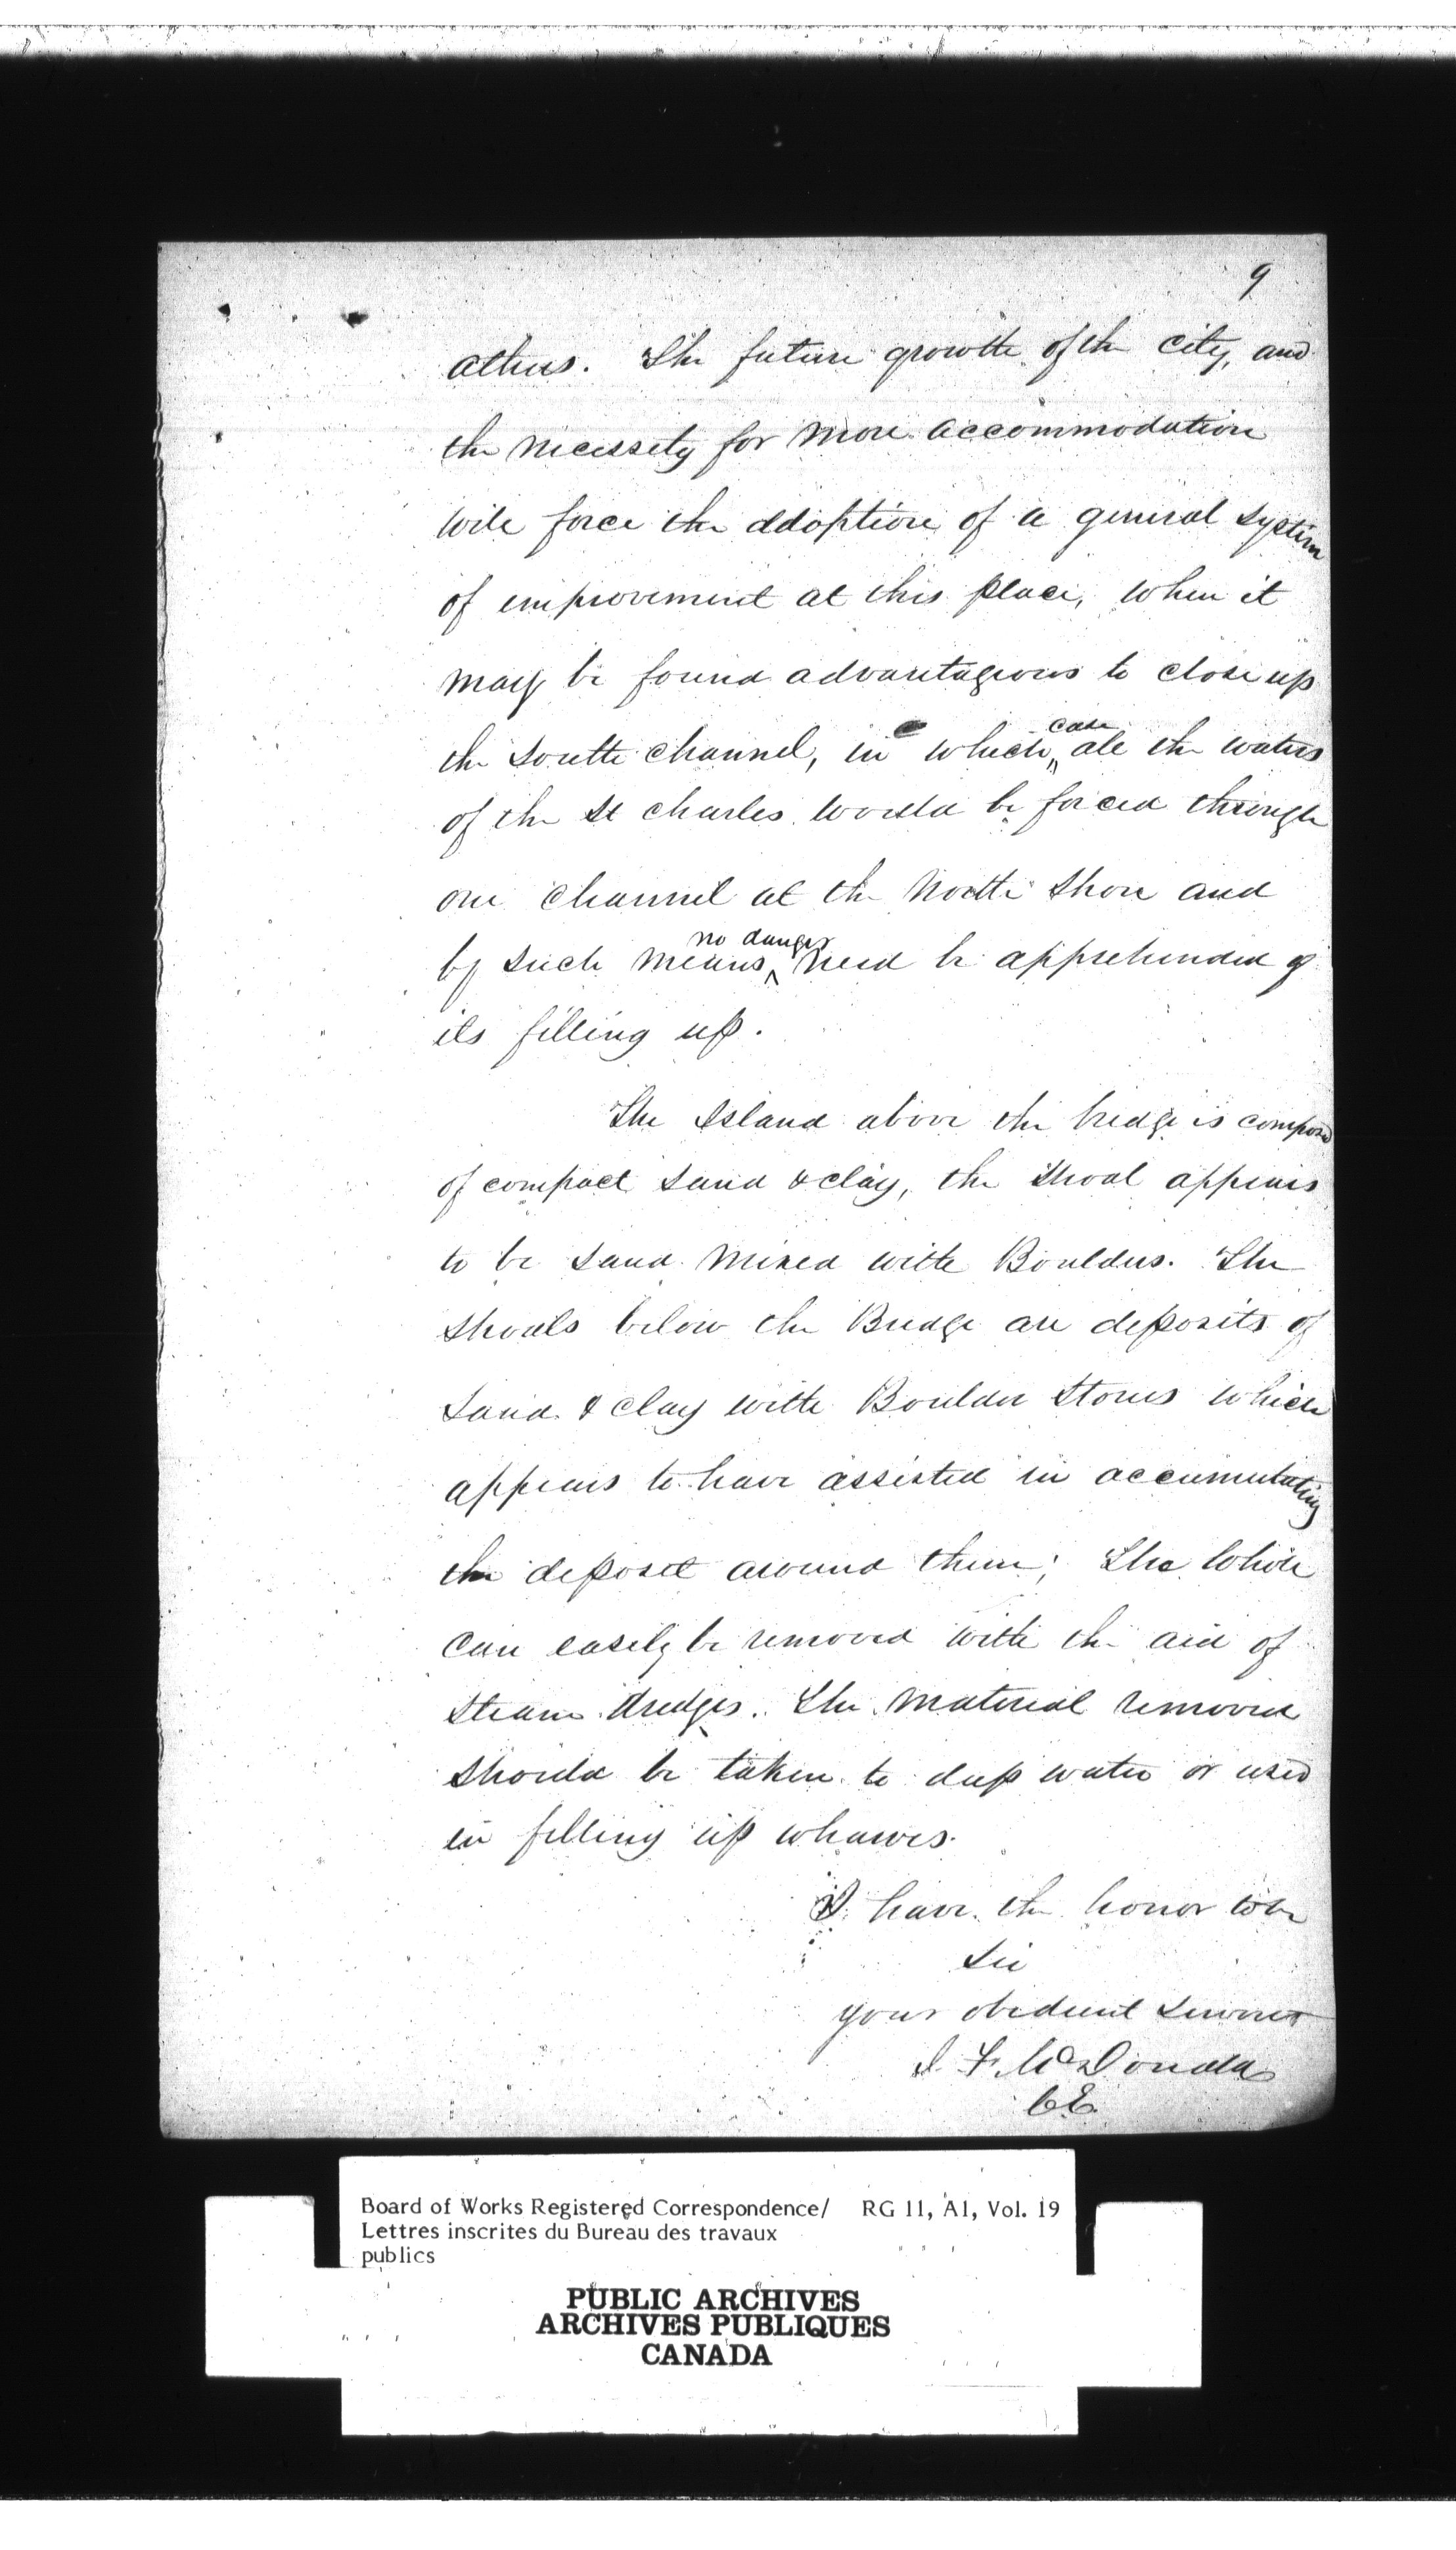 9
others. The future growth of the city, and
the necessity for more accommodation
will force the addoption of a general system
of improvement at this place, when it
may be found advantageous to close up
the South channel, in which case all the waters
of the St Charles would be forced through
one channel at the North Shore and
by such means no danger need be apprehended of
its filling up.
The Island above the bridge is composed
of compact sand & clay, the Shoal appears
to be sand mixed with Boulders. The
Shoals below the Bridge are deposits of
sand & clay with Boulder Stones which
appears to have assisted in accumulating
the deposit around them; The whole
can easily be removed with the aid of
Steam dredges. The material removed
should be taken to deep water or used
in filling up wharves.
I have the honor to be
Sir
your obedient Servant
McDonald
CE
Board of Works Registered Correspondence/ RG 11, A1, Vol. 19
Lettres inscrites du Bureau des travaux
publics
PUBLIC ARCHIVES
ARCHIVES PUBLIQUES
CANADA